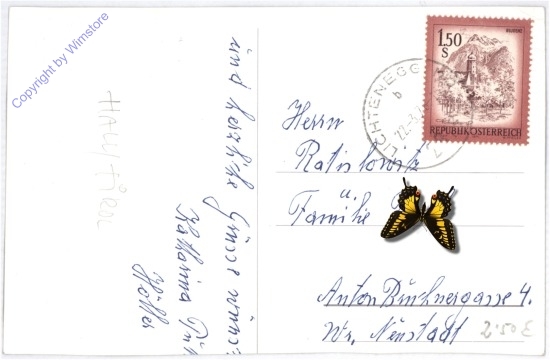 Copyright by Wimstore
und herzliche Grüsse
Katharina
Höller
1.50
S
BLUDENZ
REPUBLIK ÖSTERREICH
LICHTENEGG
b
Herrn
u.
Familie
Anton Brucknergasse 4.
Wr. Neustadt
2.50 €